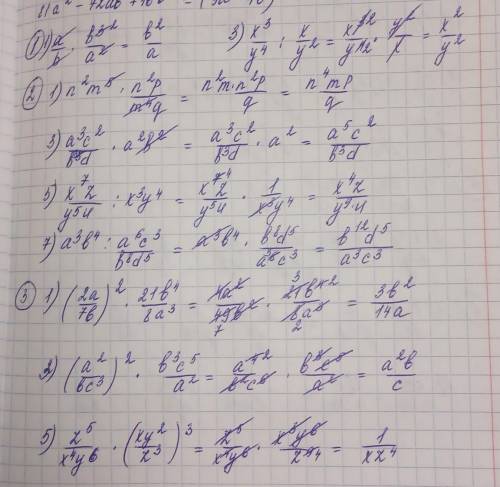 ① 1) a/b · b³/a² = b²/a    3) x³/y⁴ : x/y² = x³/y⁴ · y²/x = x²/y²
② 1) n²m⁵ · n²p/m⁴q = n²m·n²p/q = n⁴mp/q
3) a³c²/b⁵d · a²b² = a³c²/b³d · a² = a⁵c²/b³d
5) x⁷z/y⁵u : x³y⁴ = x⁷z/y⁵u · 1/x³y⁴ = x⁴z/y⁹·u
7) a³b⁴ : a⁶c³/b⁸d⁵ = a³b⁴ · b⁸d⁵/a⁶c³ = b¹²d⁵/a³c³
③ 1) (2a/7b)² · 21b⁴/8a³ = 4a²/49b² · 21b⁴/8a³ = 3b²/14a
2) (a²/bc³)² · b³c⁵/a² = a⁴/b²c⁶ · b³c⁵/a² = a²b/c
5) z⁵/x⁴y⁶ · (xy²/z³)³ = z⁵/x⁴y⁶ · x³y⁶/z⁹ = 1/xz⁴